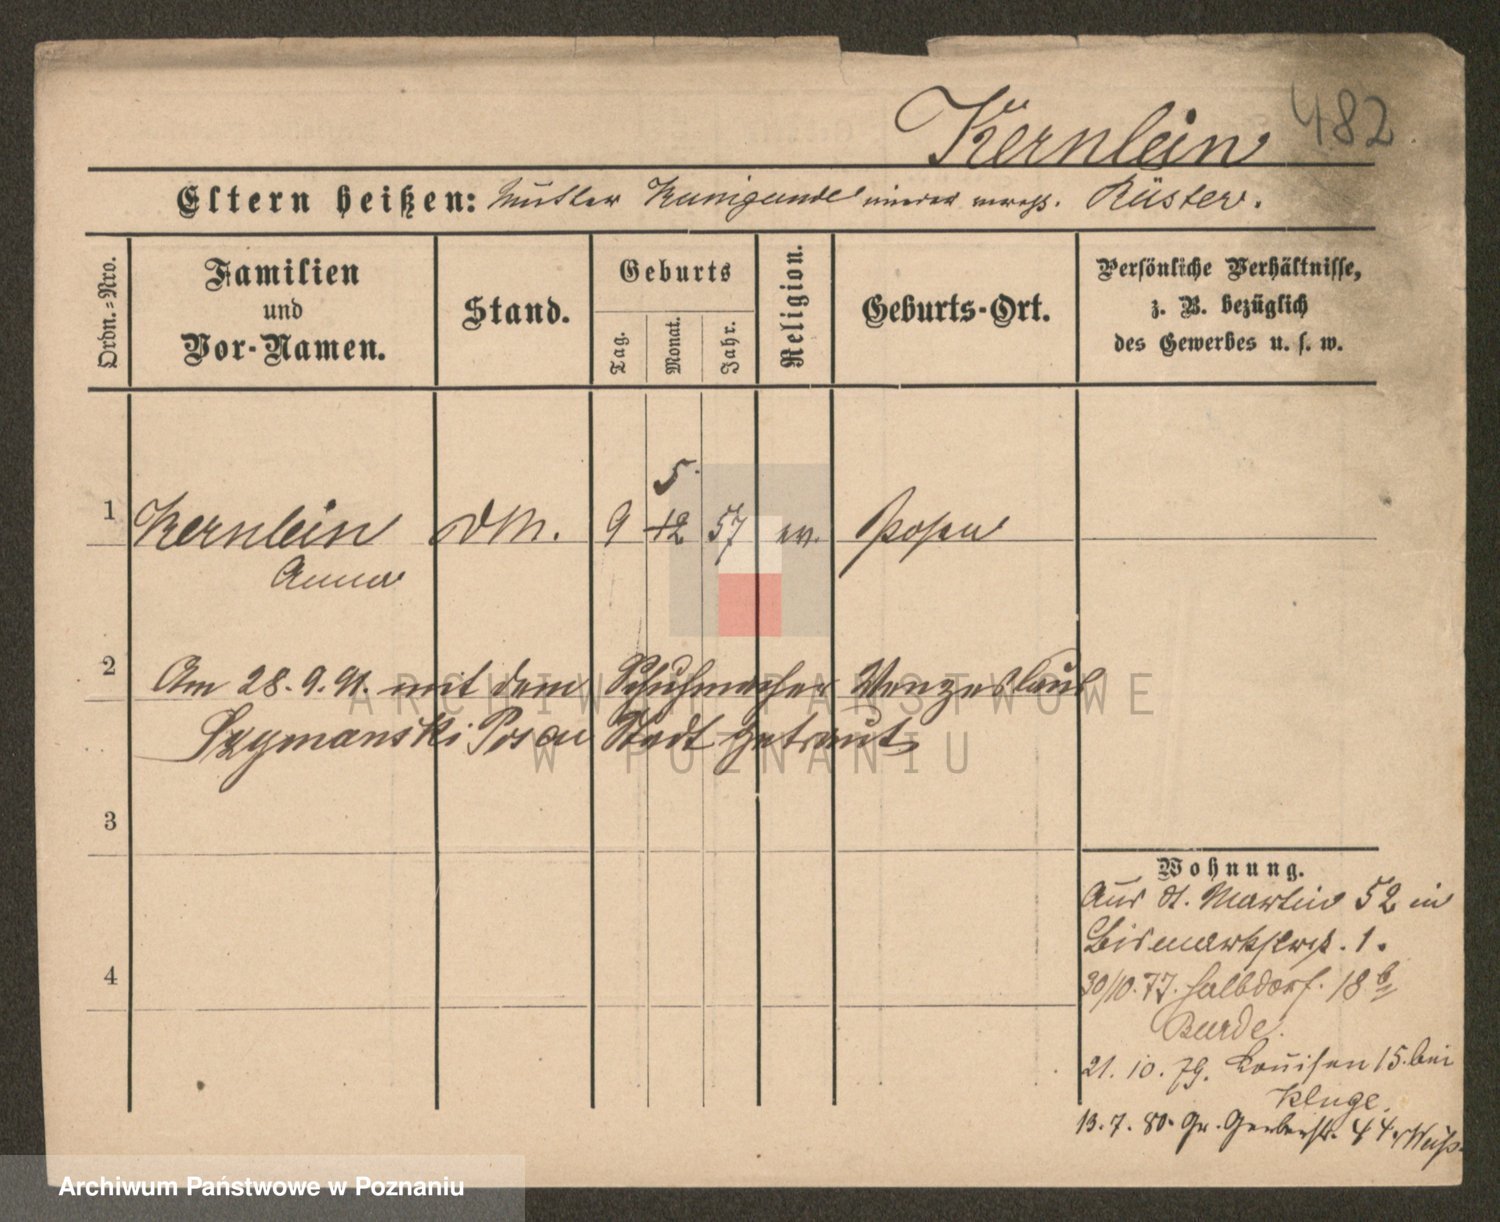 Kernlein 482
Eltern heißen: Mutter Kunigunde Rüster.
Ordn.-Nro.
Familien
und
Vor-Namen.
Stand.
Geburts
Tag.
Monat.
Jahr.
Religion.
Geburts-Ort.
Persönliche Verhältnisse,
z. B. bezüglich
des Gewerbes u. s. w.
5.
1 Kernlein DM. 9 12 57 ev. Posen
Anna
2 Am 28.9.91. mit dem Schuhmacher Wenzeslaus
Szymanski Posen Stadt getraut
3
4
Wohnung.
Aus St. Martin 52 in
Bismarkstrß. 1.
30/10.77. Halbdorf. 18 b
Burde.
21. 10. 79. Louisen 15. bei
Kluge.
13. 7. 80. Gr. Gerberstr. 44
ARCHIWUM PAŃSTWOWE
W POZNANIU
Archiwum Państwowe w Poznaniu